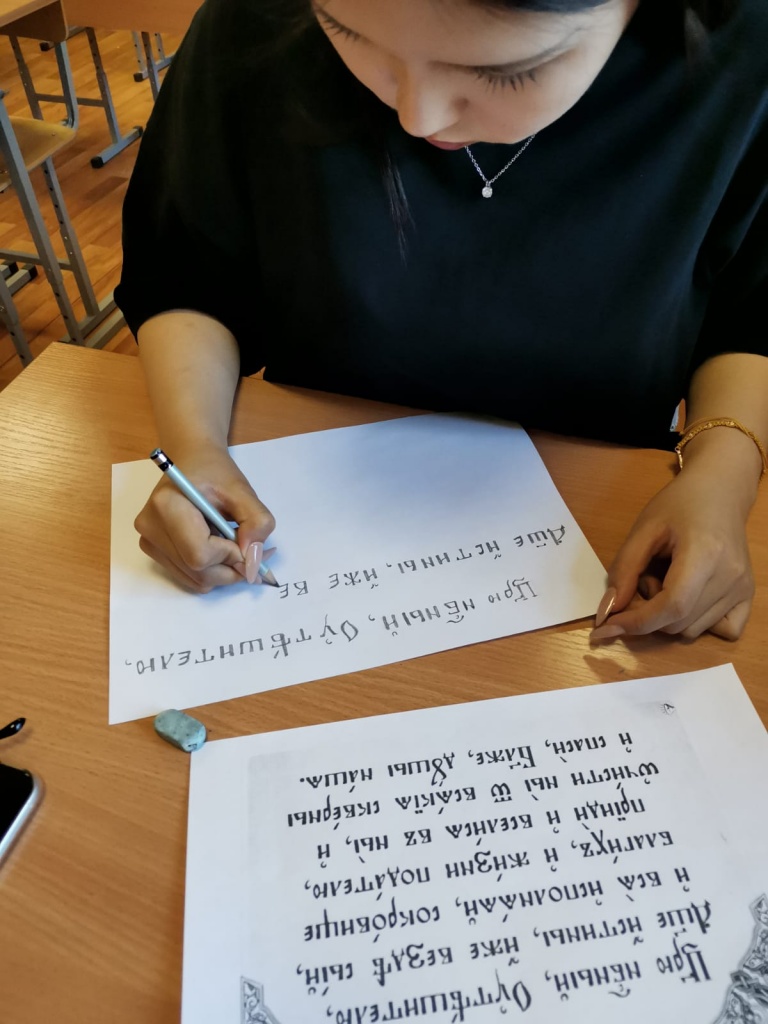 Цр҃ю нб҃ный, Оу҆тѣ́шителю,
Дш҃е и҆́стины, и҆́же ве
Цр҃ю нб҃ный, Оу҆тѣ́шителю,
Дш҃е и҆́стины, и҆́же вездѣ̀ сы́й,
и҆ всѧ̑ и҆сполнѧ́ѧй, сокро́вище
благи́хъ, и҆ жи́зни пода́телю,
прїидѝ и҆ всели́сѧ въ ны̀, и҆
ѡ҆чи́сти ны̀ ѿ всѧ́кїѧ скве́рны
и҆ спасѝ, Бл҃же, дꙋ́шы на́шѧ.